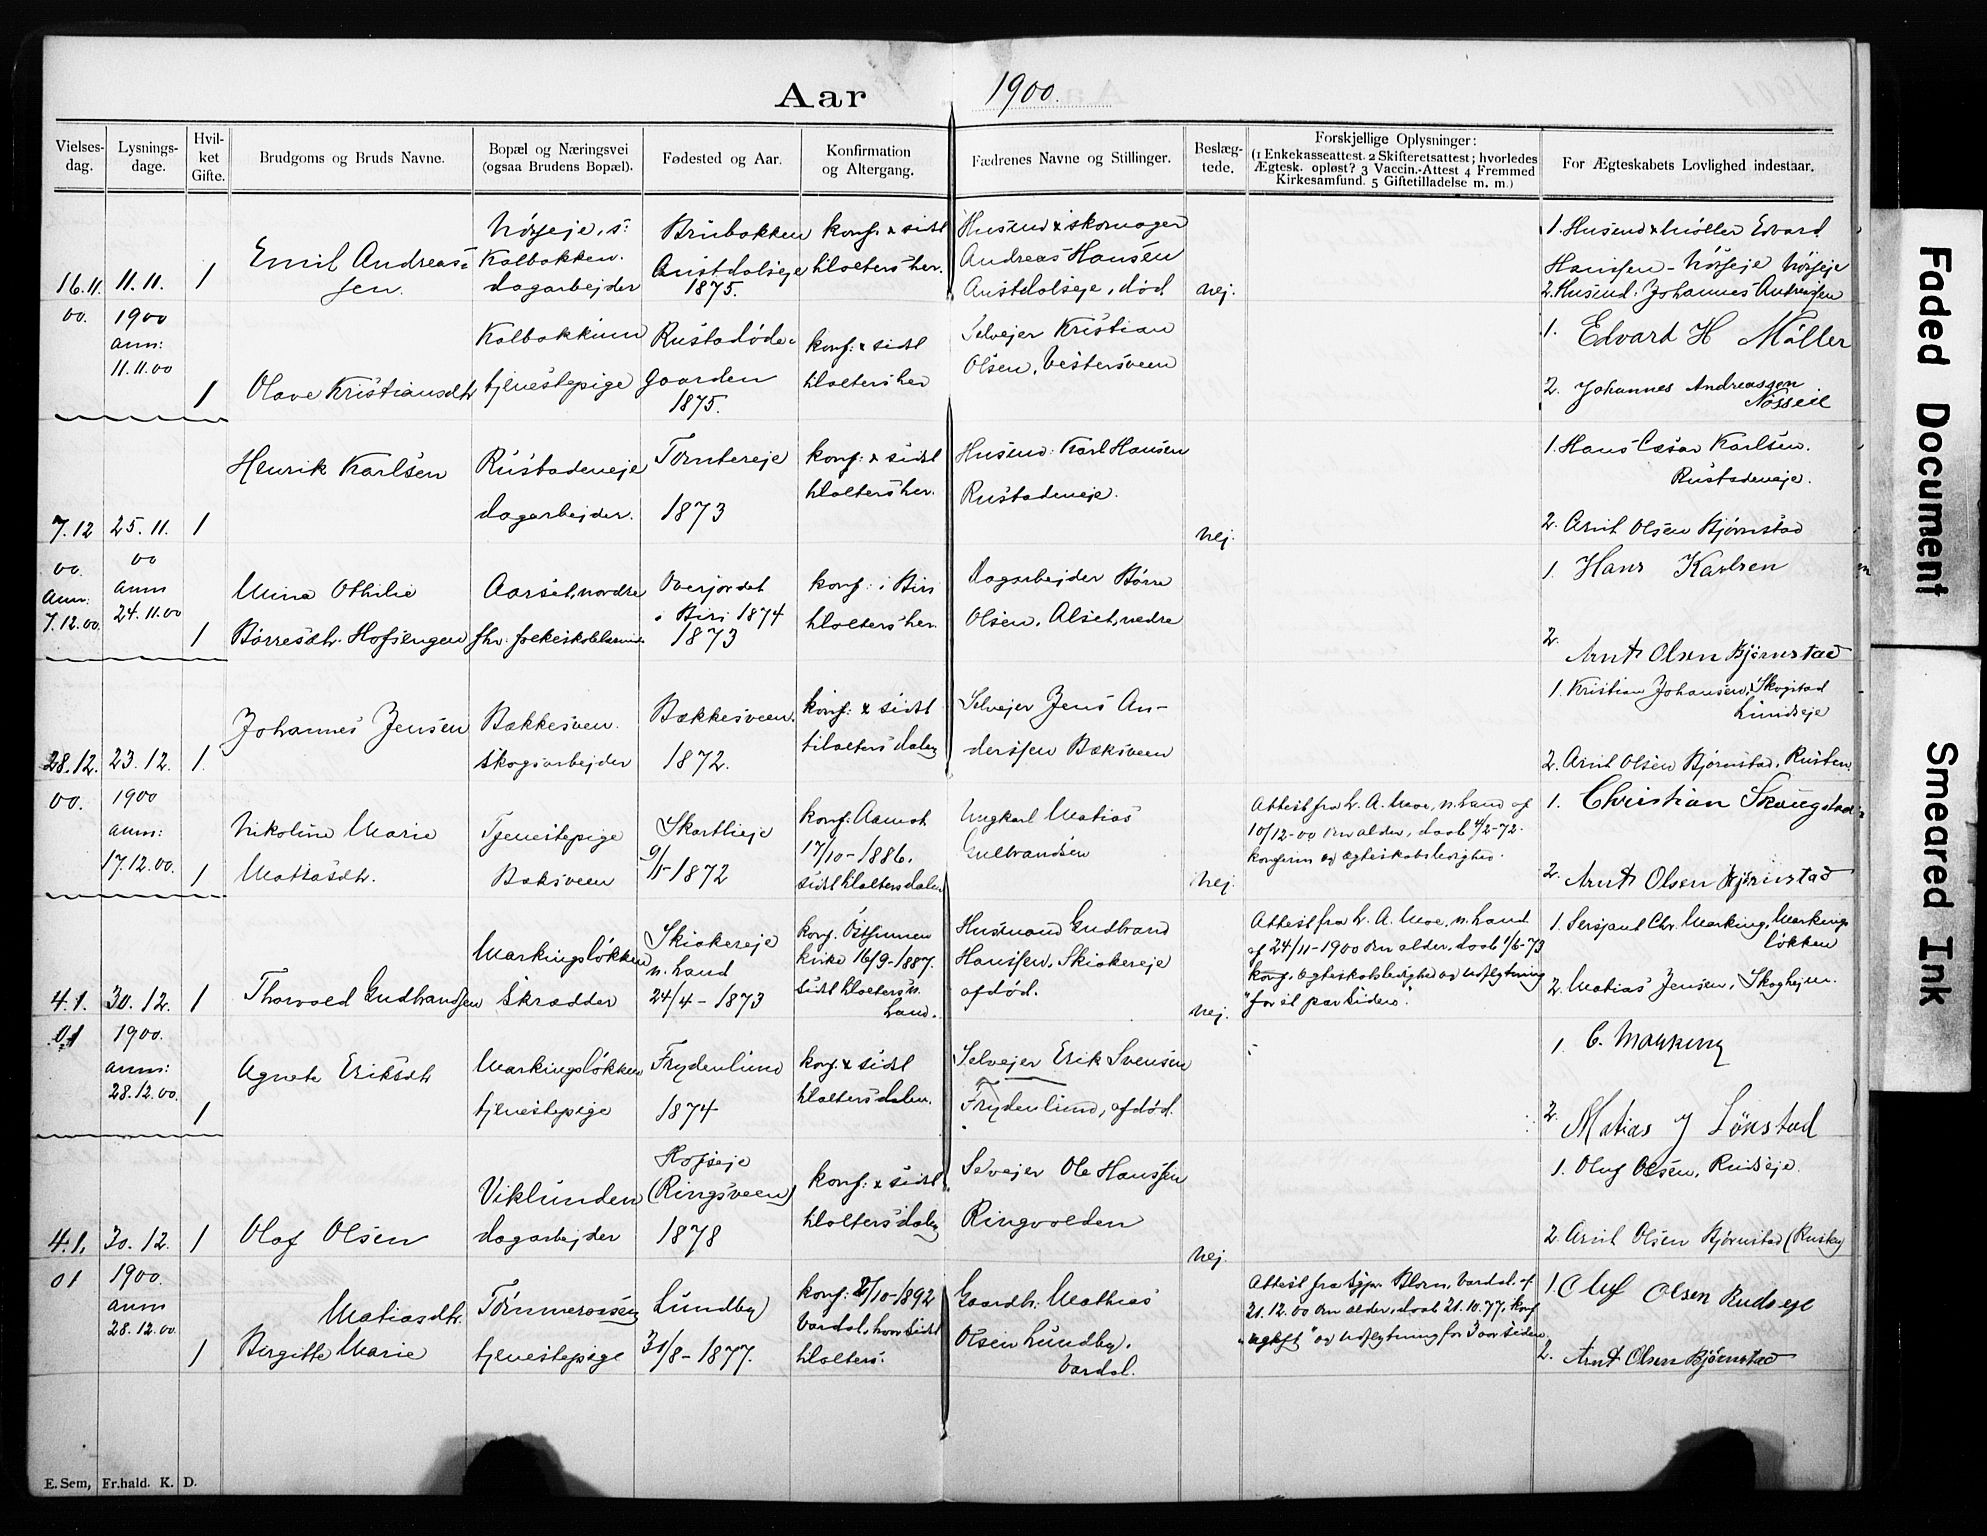 Aar 1900.
Vielses-
dag.
Lysnings-
dage.
Hvil-
ket
Gifte.
Brudgoms og Bruds Navne.
Bopæl og Næringsvei
(ogsaa Brudens Bopæl).
Fødested og Aar.
Konfirmation
og Altergang.
Fædrenes Navne og Stillinger.
Beslæg-
tede.
Forskjellige Oplysninger:
(1 Enkekasseattest. 2 Skifteretsattest; hvorledes
Ægtesk. opløst? 3 Vaccin.-Attest 4 Fremmed
Kirkesamfund. 5 Giftetilladelse m. m.)
For Ægteskabets Lovlighed indestaar.
16.11.
00.
11.11.
1900
anm:
11.11.00
1
Emil Andreas-
sen.
Kalbakken.
dagarbejder
Brubakken
Austdalseje
1875.
konf. & sidst
tilalters her.
Husmd & skomager
Andreas Hansen
Austdalseje, død
nej.
1. Husmd & Møller Edvard
Hanssen
2. Husmd: Johannes Andreassen
1
Olave Kristiansdtr
Kalbakkum
tjenestepige
gaarden
1875.
konf: & sidst
tilalters her
Selvejer Kristian
Olsen, Vestersveen
1. Edvard H Møller
2. Johannes Andreassen
7.12
00.
Anm:
7.12.00.
25.11.
00
anm
24.11.00
1
Henrik Karlsen
Rustadeneje
dagarbejder.
1873
konf: & sidst
tilalters her.
Husmd: Karl Hansen
Rustadeneje.
nej.
1. Hans Cæsar Karlsen.
Rustadeneje.
2. Arnt Olsen Bjørnstad
1
Mina Othilie
Børresdtr. Hofsengen
Aarset, nordre
Overjordet
i Biri 1874
1873
konf: i Biri
tilalters her.
Dagarbejder Børre
Olsen, Alset, nedre
1. Hans Karlsen
2. Arnt Olsen Bjørnstad
28.12.
00.
23.12.
1900
anm:
17.12.00.
1.
Johannes Jensen
Bakkesveen.
skogsarbejder
Bækkesveen.
1872.
konf: & sidst
tilalters dalen
Selvejer Jens An-
derssen Bæksveen
nej.
1. Kristian Johansen, Skogstad
Lundseje
2. Arnt Olsen Bjørnstad, Rusten.
1
Nikoline Marie
Matiasdtr.
Tjenestepige
Baksveen
Skartlieje
9/11-1872
konf: Aamot
17/10-1886.
sidst tilalters dalen
Ungkarl Matias
Gulbrandsen
Attest fra L. A. Moe, n. Land af
10/12-00 om alder, daab 4/2-72.
konferm og ægteskabsledighed.
1. Christian Skougstad
2. Arnt Olsen Bjørnstad
4.1.
01
30.12.
1900.
anm:
28.12.00.
1
Thorvald Gudbrandsen
Markingsløkken
Skrædder
Skiakereje
n. Land
24/4-1873
konf. Østsinnen
kirke 16/9-1887.
sidst tilalters n.
Land.
Husmand Gudbrand
Hanssen, Skiakereje
afdød.
nej.
Attest fra L. A. Moe, n. Land
af 24/11-1900 om alder, daab 1/6-73
konf., ægteskabsledighed og udflytning
"for et par siden".
1. Sersjant Chr. Marking, Markings
løkken
2. Matias Jensen, Skoghejm.
1
Agnete Eriksdtr
Markingsløkken
tjenestepige
Frydenlund
1874
konf: & sidst
tilalters dalen.
Selvejer Erik Svensen
Frydenlund, afdød.
1. C. Marking
2. Matias J Lønstad
4.1.
01
30.12.
1900.
anm
28.12.00.
1
Olaf Olsen
Viklunden
dagarbejder
Hofseje
(Ringsveen)
1878
konf: & sidst
tilalters dalen
Selvejer Ole Hanssen
Ringvolden
nej.
1. Oluf Olsen, Rudseje.
2. Arnt Olsen Bjørnstad (Rusten)
1
Matiasdtr.
Birgitte Marie
tjenestepige
Lundby
31/8-1877.
konf: 2/10-1892
Vardal, hvor sidst
tilalters.
Gaardb: Mathias
Olsen Lundby,
Vardal.
Attest fra Sgpr. Blom, Vardal af
21.12.00 om alder, daab 21.10.77, konf
"ugift" og udflytning for 3 aar siden.
1. Oluf Olsen Rudseje
2. Arnt Olsen Bjørnstad
E. Sem, Fr.hald. K. D.
Faded Document
Smeared Ink